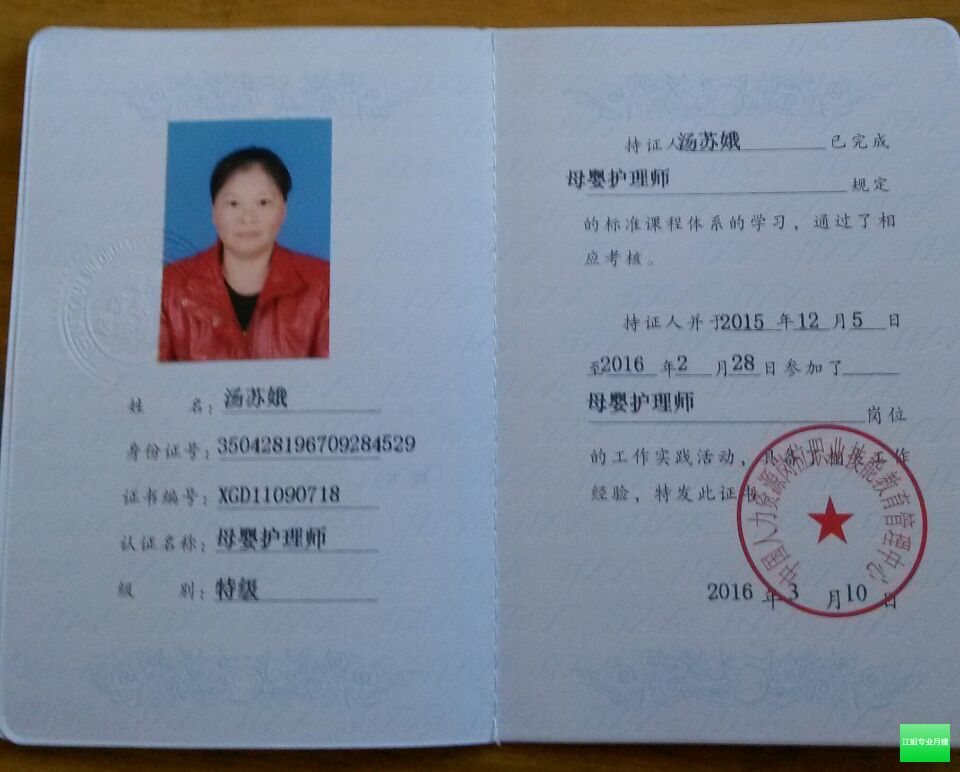 姓 名：汤苏娥
身份证号：350428196709284529
证书编号：XGD11090718
认证名称：母婴护理师
级 别：特级
持证人汤苏娥 已完成
母婴护理师 规定
的标准课程体系的学习，通过了相
应考核。
持证人并于2015 年12 月5 日
至2016 年2 月28日参加了
母婴护理师 岗位
的工作实践活动，具备了相应工作
经验，特发此证书
中国人力资源岗位职业技能教育管理中心
2016 年3 月10 日
江姐专业月嫂